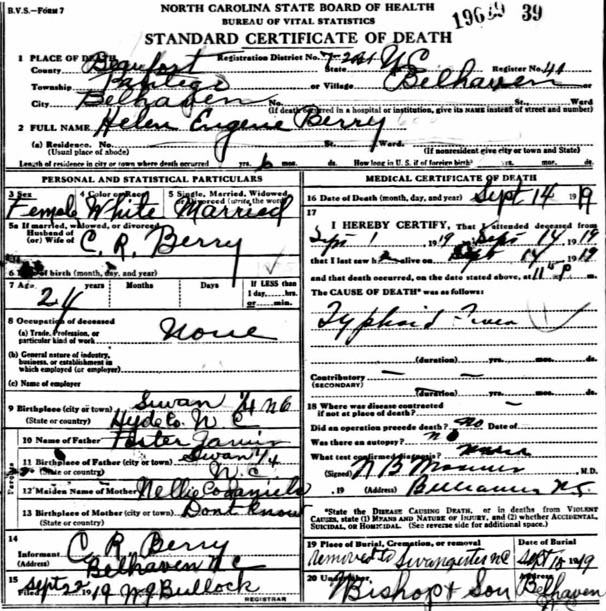 B.V.S.—Form 7
NORTH CAROLINA STATE BOARD OF HEALTH
BUREAU OF VITAL STATISTICS
39
STANDARD CERTIFICATE OF DEATH
1 PLACE OF DEATH Registration District No.
County Beaufort State N C Register No. 41
Township Pantego or Village Belhaven or
City Belhaven No. St., Ward
(If death occurred in a hospital or institution, give its NAME instead of street and number)
2 FULL NAME Helen Eugene Berry
(a) Residence. No. St. Ward.
(Usual place of abode) (If nonresident give city or town and State)
Length of residence in city or town where death occurred yrs. 6 mos. ds. How long in U. S. if of foreign birth? yrs. mos. ds.
PERSONAL AND STATISTICAL PARTICULARS
3 Sex 4 Color or Race 5 Single, Married, Widowed
or Divorced (write the word)
Female White Married
5a If married, widowed, or divorced
Husband of
(or) Wife of C. R. Berry
6 Date of birth (month, day, and year)
7 Age years Months Days If LESS than
1 day, hrs.
or min.
24
8 Occupation of deceased
(a) Trade, Profession, or
particular kind of work None
(b) General nature of industry,
business, or establishment in
which employed (or employer)
(c) Name of employer
9 Birthplace (city or town) Swan 1/4 N C
(State or country) Hyde Co. N C
10 Name of Father Foster
11 Birthplace of Father (city or town) Swan 1/4
(State or country) N. C
12 Maiden Name of Mother Nellie
13 Birthplace of Mother Dont Know
14
Informant C R Berry
(Address) Belhaven N C
15
Filed Sept 22 19 W J Bullock
REGISTRAR
MEDICAL CERTIFICATE OF DEATH
16 Date of Death (month, day, and year) Sept 14 19
17
I HEREBY CERTIFY, That I attended deceased from
Sept 1 1919 Sept 14 1919
that I last saw h alive on Sept 14 1919
and that death occurred, on the date stated above, at 11
The CAUSE OF DEATH* was as follows:
Typhoid Fever
(duration) yrs. mos. ds.
Contributory
(SECONDARY)
(duration) yrs. mos. ds.
18 Where was disease contracted
if not at place of death?
Did an operation precede death? no Date of
Was there an autopsy? no
What test confirmed diagnosis?
(Signed) M.D.
, 19 (Address) Belhaven N C
*State the DISEASE CAUSING DEATH, or in deaths from VIOLENT
CAUSES, state (1) MEANS AND NATURE OF INJURY, and (2) whether ACCIDENTAL,
SUICIDAL, or HOMICIDAL. (See reverse side for additional space.)
19 Place of Burial, Cremation, or removal Date of Burial
removed to N C Sept 1919
20 Undertaker Address
Bishop & Son Belhaven